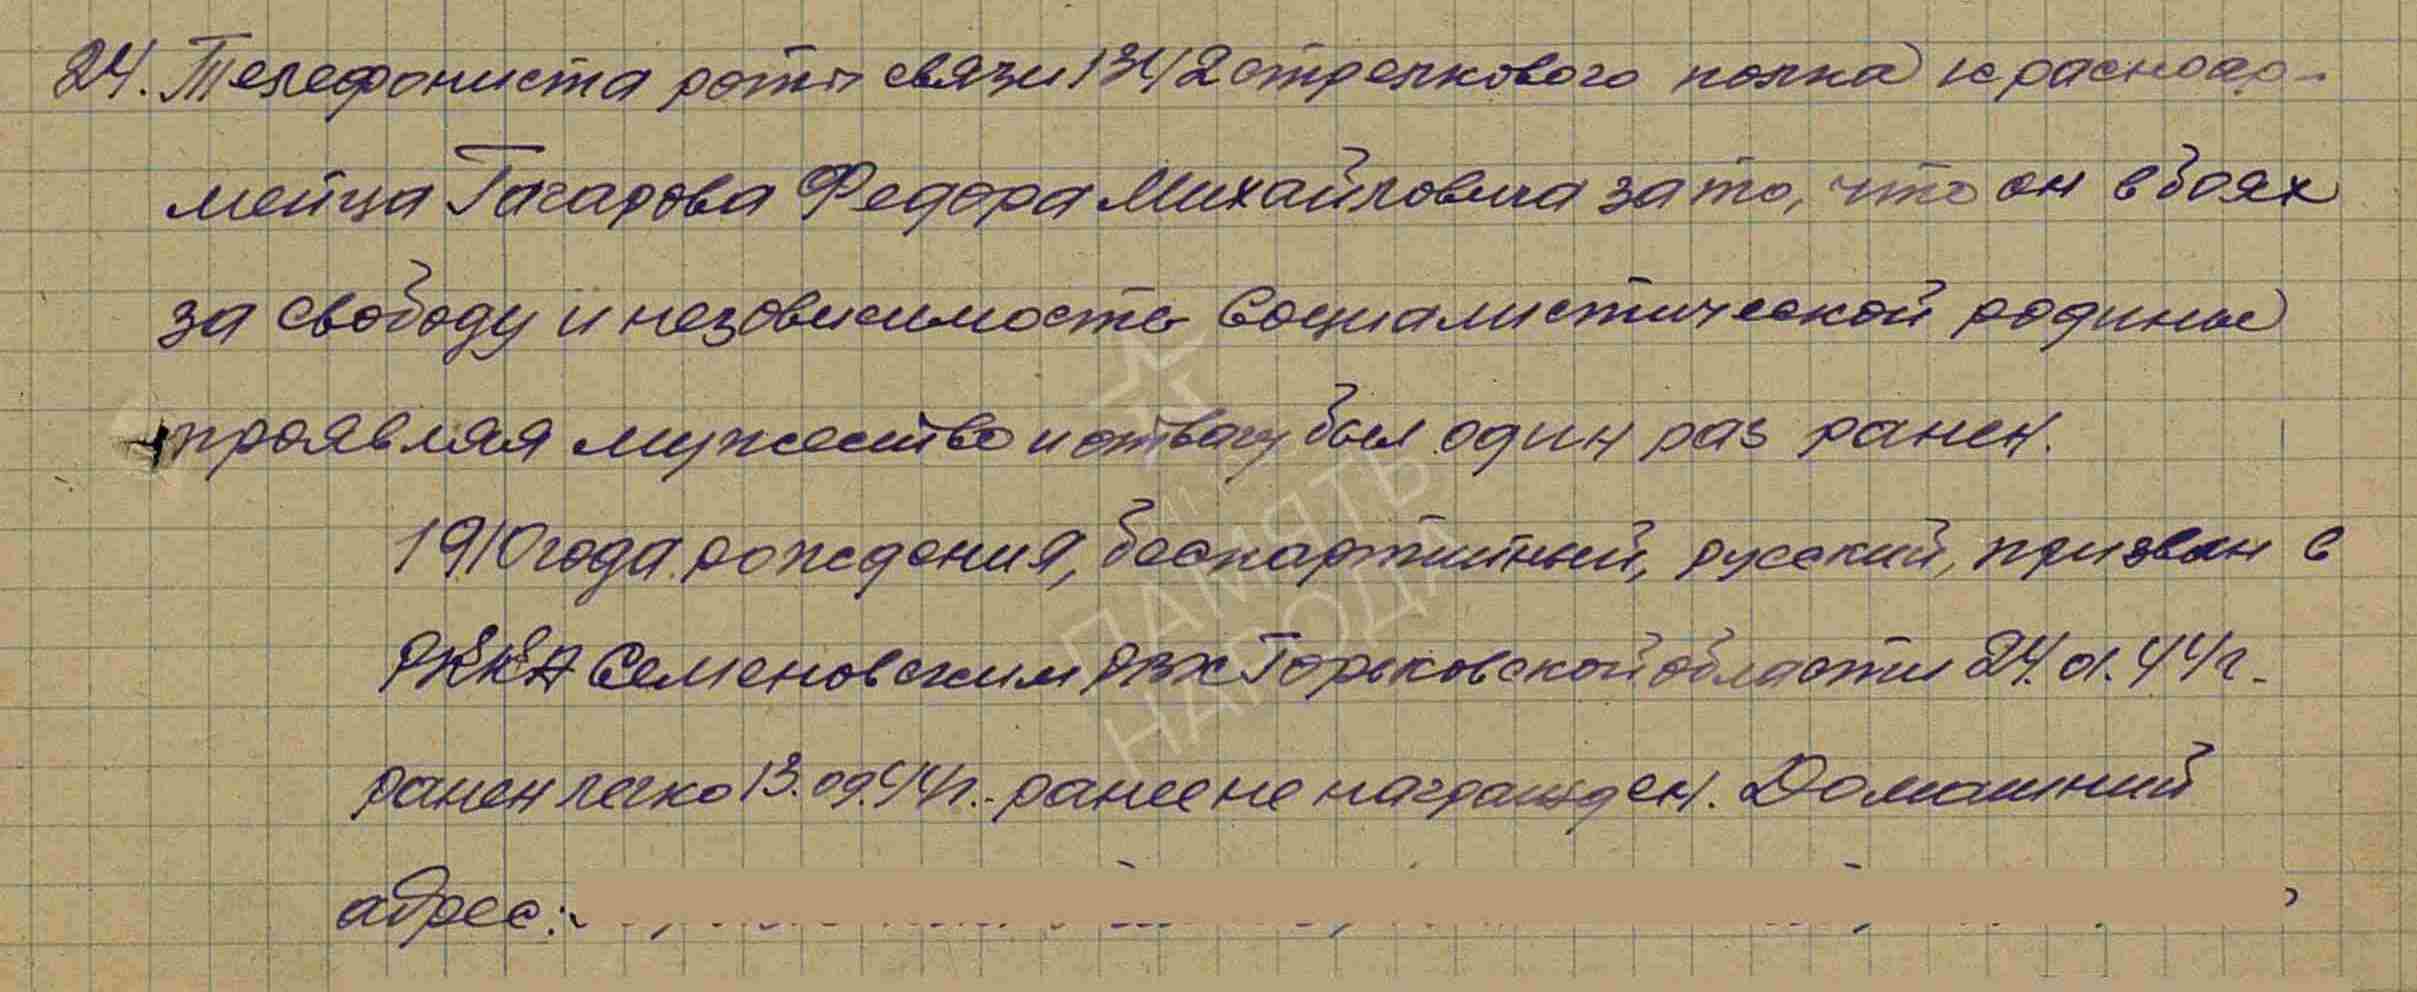 24. Телефониста роты связи 1342 стрелкового полка краснoар-
мейца Гагарова Федора Михайловича за то, что он в боях
за свободу и незовисимость Социалистической родины
проявляя мужество и отвагу был один раз ранен.
1910 года рождения, беспартийный, русский, призван в
РККА Семеновским РВК Горьковской области 24.01.44 г.
ранен легко 13.09.44 г. ранее не награжден. Домашний
адрес:
ПАМЯТЬ
НАРОДА